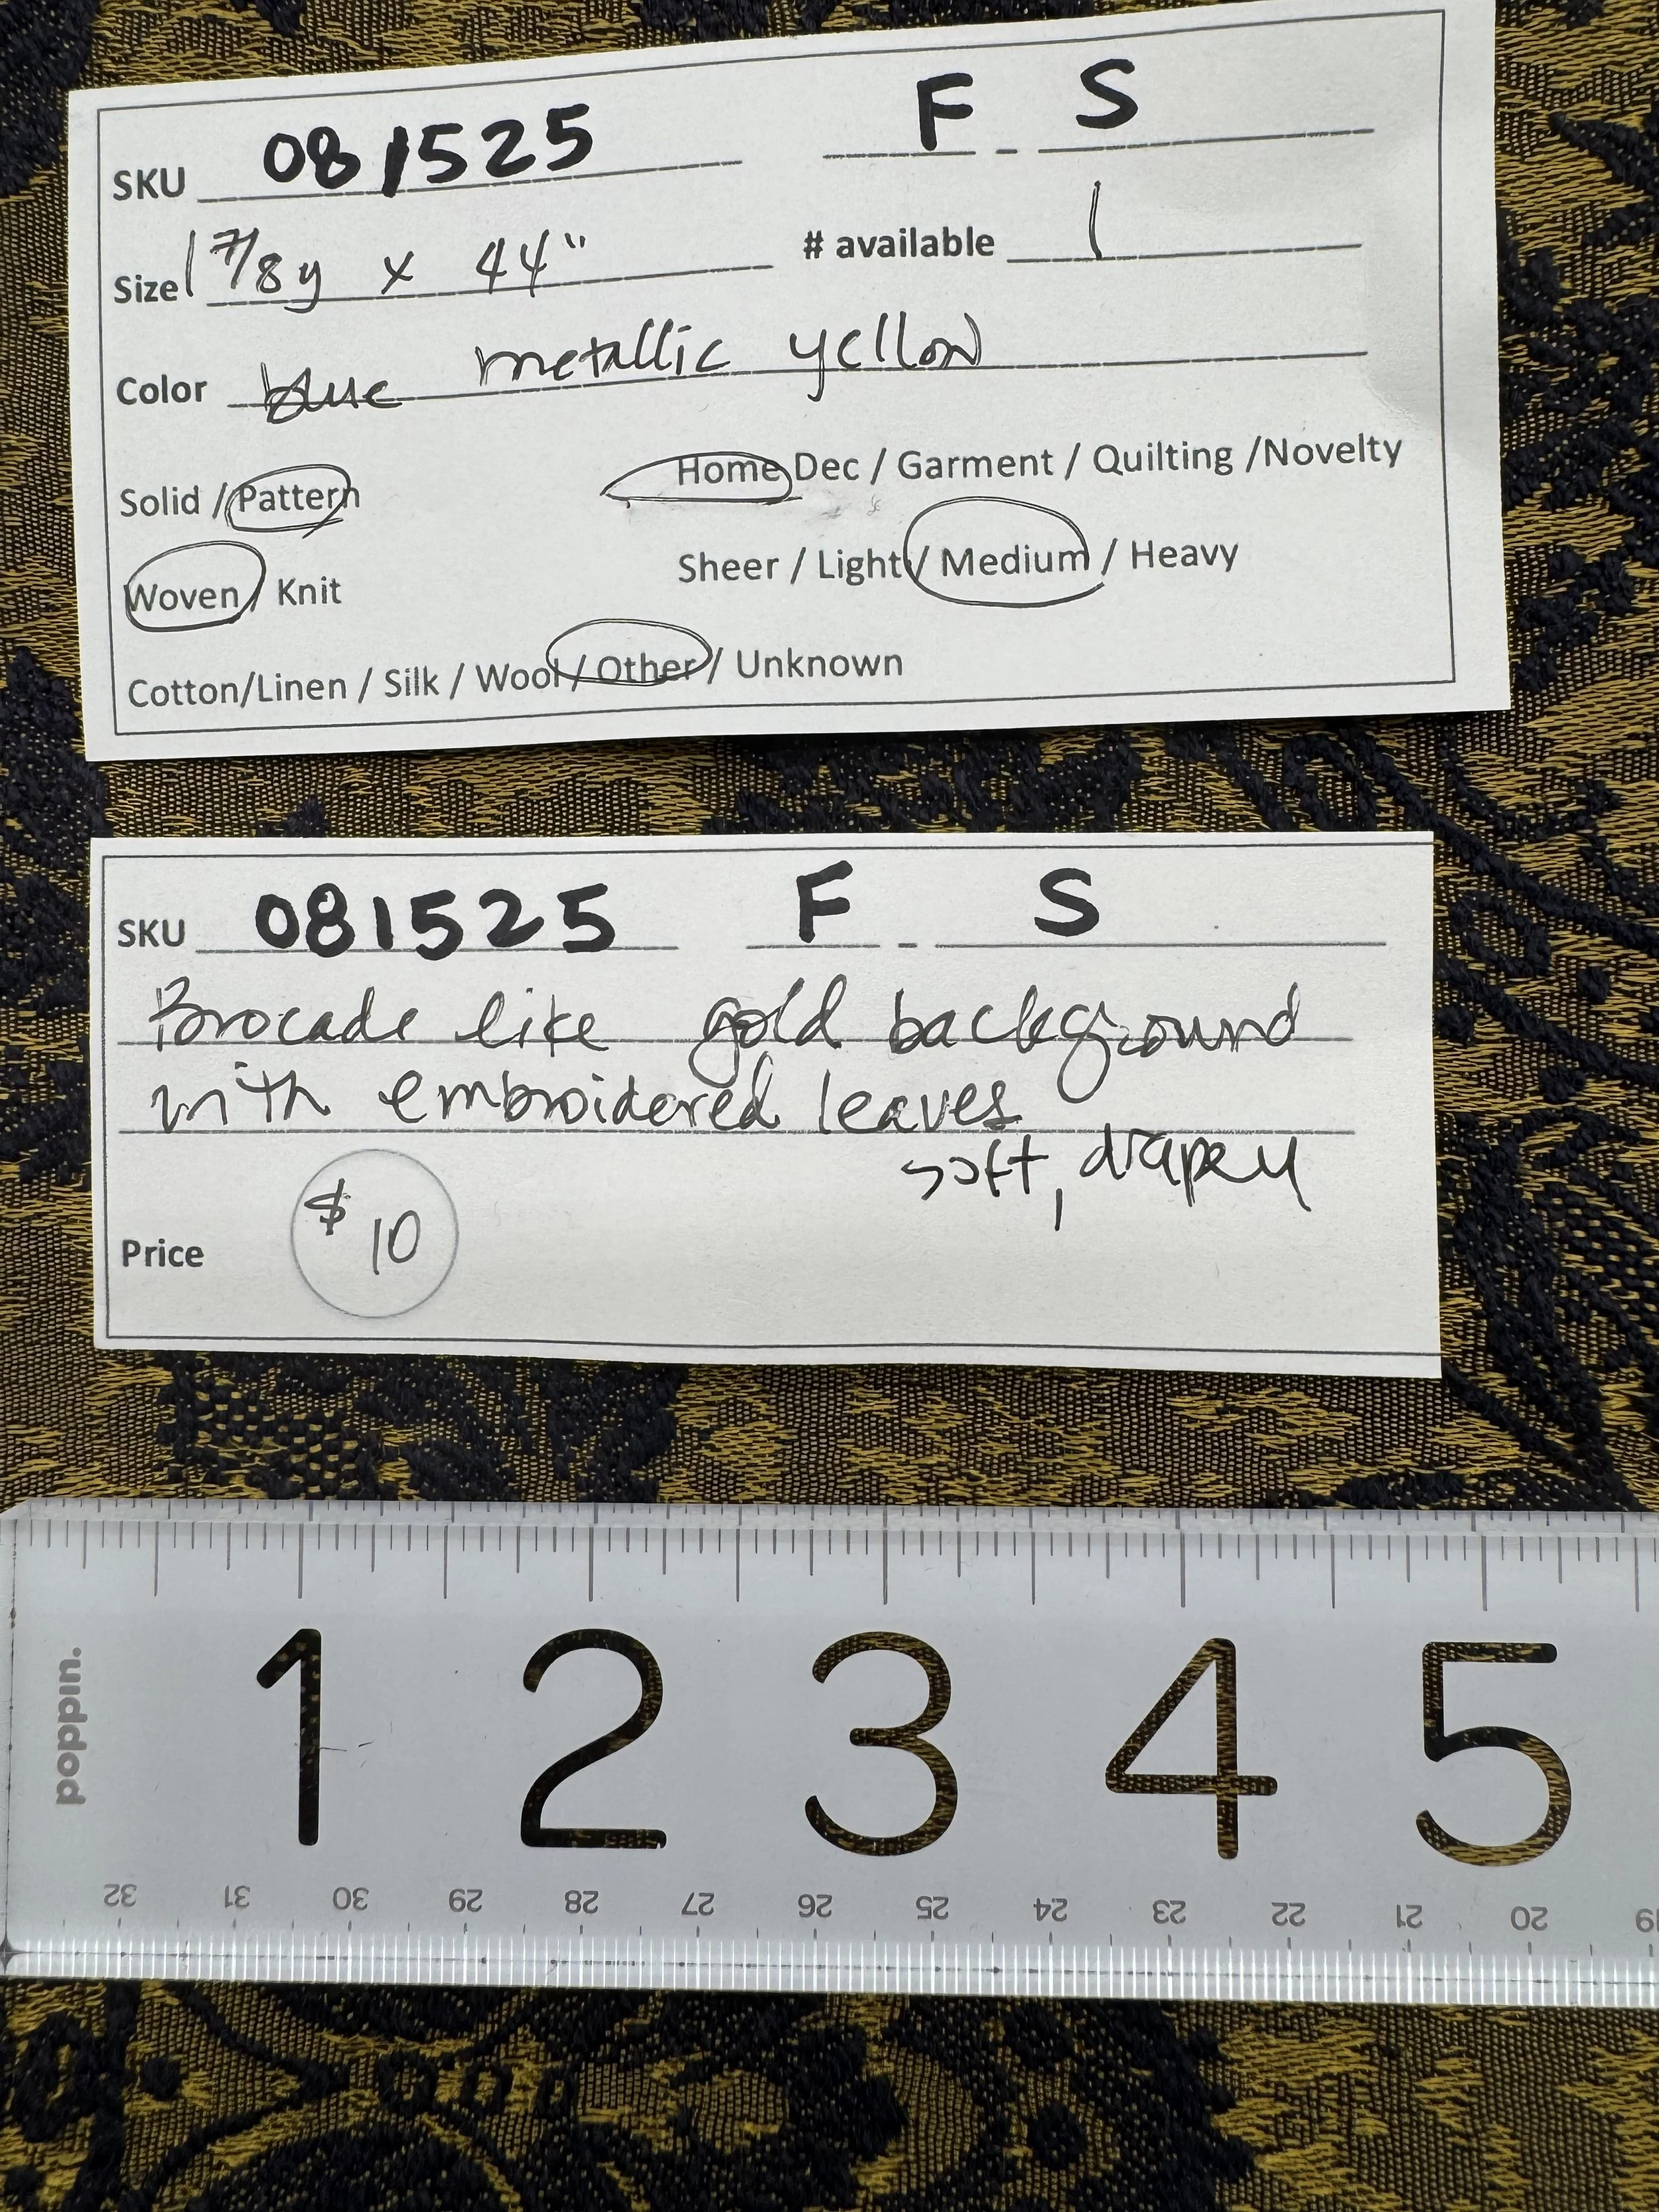 SKU 081525 F - S
Size 1 7/8 y x 44" # available 1
Color blue metallic yellow
Solid / Pattern Home Dec / Garment / Quilting /Novelty
Woven / Knit Sheer / Light / Medium / Heavy
Cotton/Linen / Silk / Wool / Other / Unknown
SKU 081525 F - S
Brocade like gold background
with embroidered leaves
soft, drapey
Price $10
poppin.
1 2 3 4 5
32 31 30 29 28 27 26 25 24 23 22 21 20 19